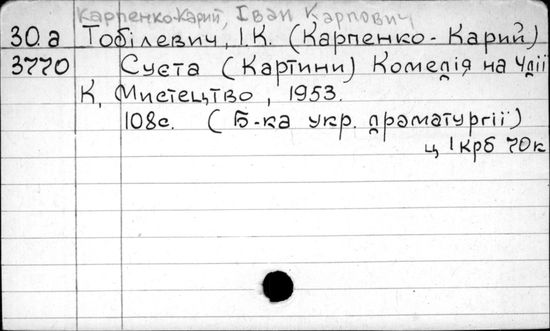 Карпенко-Карий, Іван Карпович
30.а Тобілевич, І.К. (Карпенко-Карий)
3770 Суєта (Картини) Комедія на 4 дії
К, Мистецтво, 1953.
108с. (Б-ка укр. драматургії)
ц 1 крб 70к